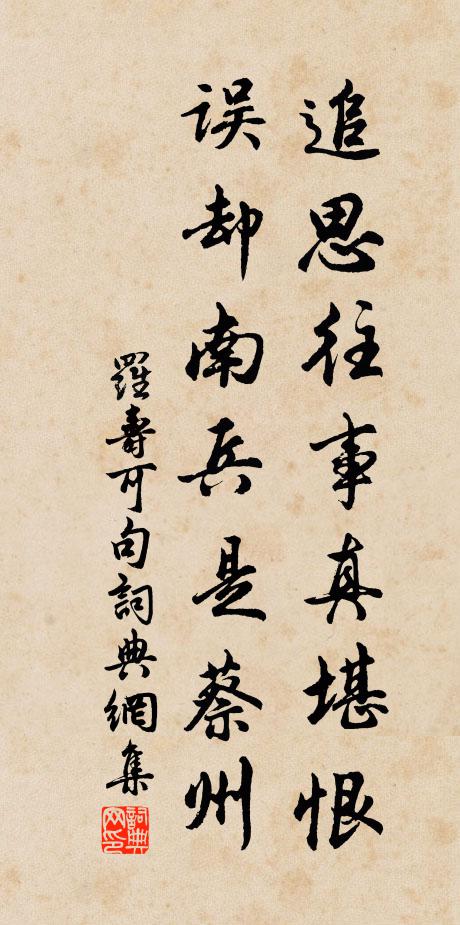 追思往事真堪恨
误却南兵是蔡州
羅壽可句詞典網集
詞典网印